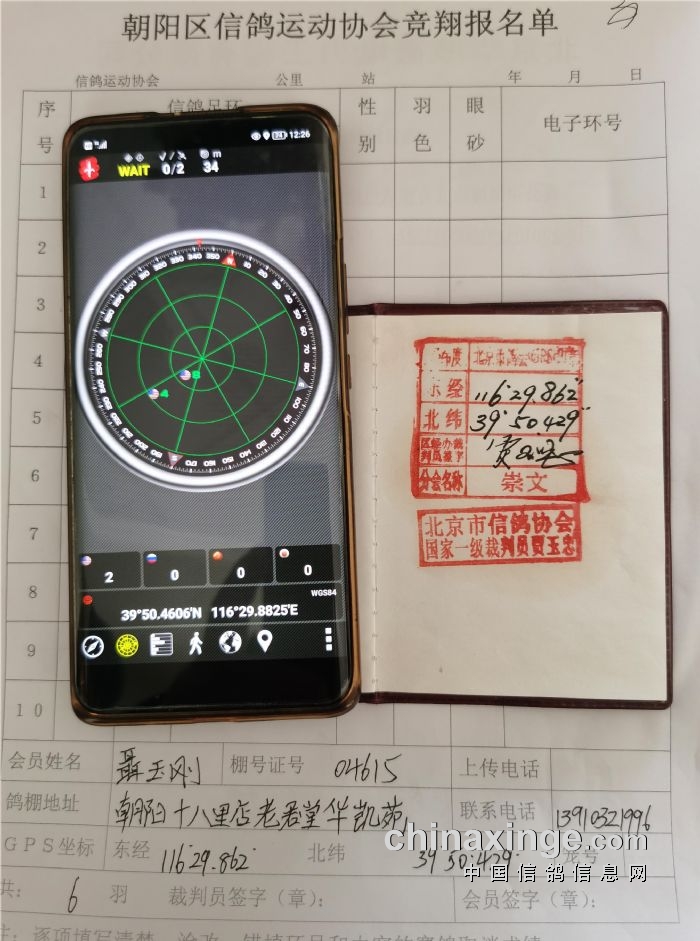 朝阳区信鸽运动协会竞翔报名单
信鸽运动协会 公里 站 年 月 日
序号 信鸽足环 性别 羽色 眼砂 电子环号
1
2
3
4
5
6
7
8
9
10
12:26
WAIT 0/2 m 34
340 350 N 10 20 30 40 50 60 70 80 E 100 110 120 130 140 150 160 170 S 190 200 210
8
4
2 0 0 0
WGS84
39°50.4606'N 116°29.8825'E
东经 116°29.862"
北纬 39°50.429"
分会名称 崇文
北京市信鸽协会
国家一级裁判员贾玉忠
会员姓名 聂玉刚 棚号证号 04615 上传电话
鸽棚地址 朝阳十八里店老君堂华凯苑 联系电话 13910321996
GPS坐标 东经 116°29.862" 北纬 39°50.429"
共: 6 羽 裁判员签字(章): 会员签字(章):
chinaxinge.com
中国信鸽信息网